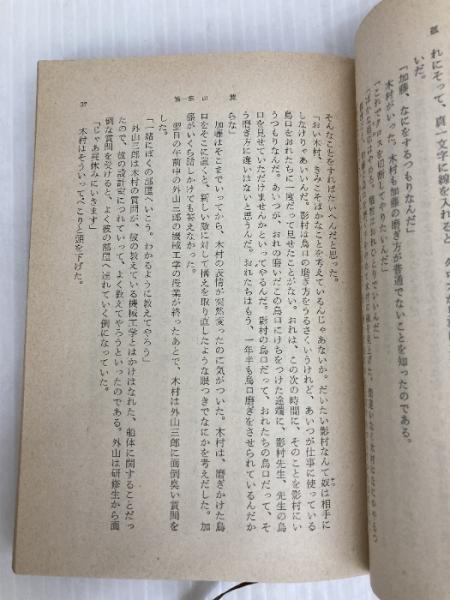 孤
れにそって、真一文字に線を入れると
いだ。
「加藤、なにをするつもりなんだ」
木村がいった。木村も加藤の磨ぎ方が普通でないことを知ったのである。
を切断してやりたいんだ」
37
第一章 山 麓
そんなことをすればたいへんだと思った。
「おい木村、きみこそばかなことを考えているんじゃあないか。だいたい影村なんて奴は相手に
しなけりゃあいいんだ。影村は烏口の磨ぎ方をうるさくいうけれど、あいつが仕事に使っている
烏口をおれたちに一度だって見せたことがない。おれは、この次の時間に、そのことを影村にい
うつもりなんだ。あいつが、おれの磨いだこの烏口にけちをつけた途端に、影村先生、先生の烏
口を見せていただけませんかといってやるんだ。影村の烏口だって、おれたちの烏口だって、そ
う磨ぎ方に違いはないと思うんだ。おれたちはもう、一年半も烏口磨ぎをさせられているんだか
らな」
加藤はそこまでいってから、木村の表情が突然変ったのに気がついた。木村は、磨ぎかけた烏
口をそこに置くと、新しい敵に対して構えを取り直したような眼つきでなにかを考えだした。加
藤がいくら話しかけても答えなかった。
翌日の午前中の外山三郎の機械工学の授業が終ったあとで、木村は外山三郎に面倒臭い質問を
した。
「一緒にぼくの部屋へいこう。わかるように教えてやろう」
外山三郎は木村の質問が、彼の教えている機械工学とはかけはなれた、船体に関することだっ
たので、彼の設計室につれていって、よく教えてやろうといったのである。外山は研修生から面
倒な質問を受けると、よく彼の部屋へ連れていく例になっていた。
「じゃあ昼休みにいきます」
木村はそういってぺこりと頭を下げた。